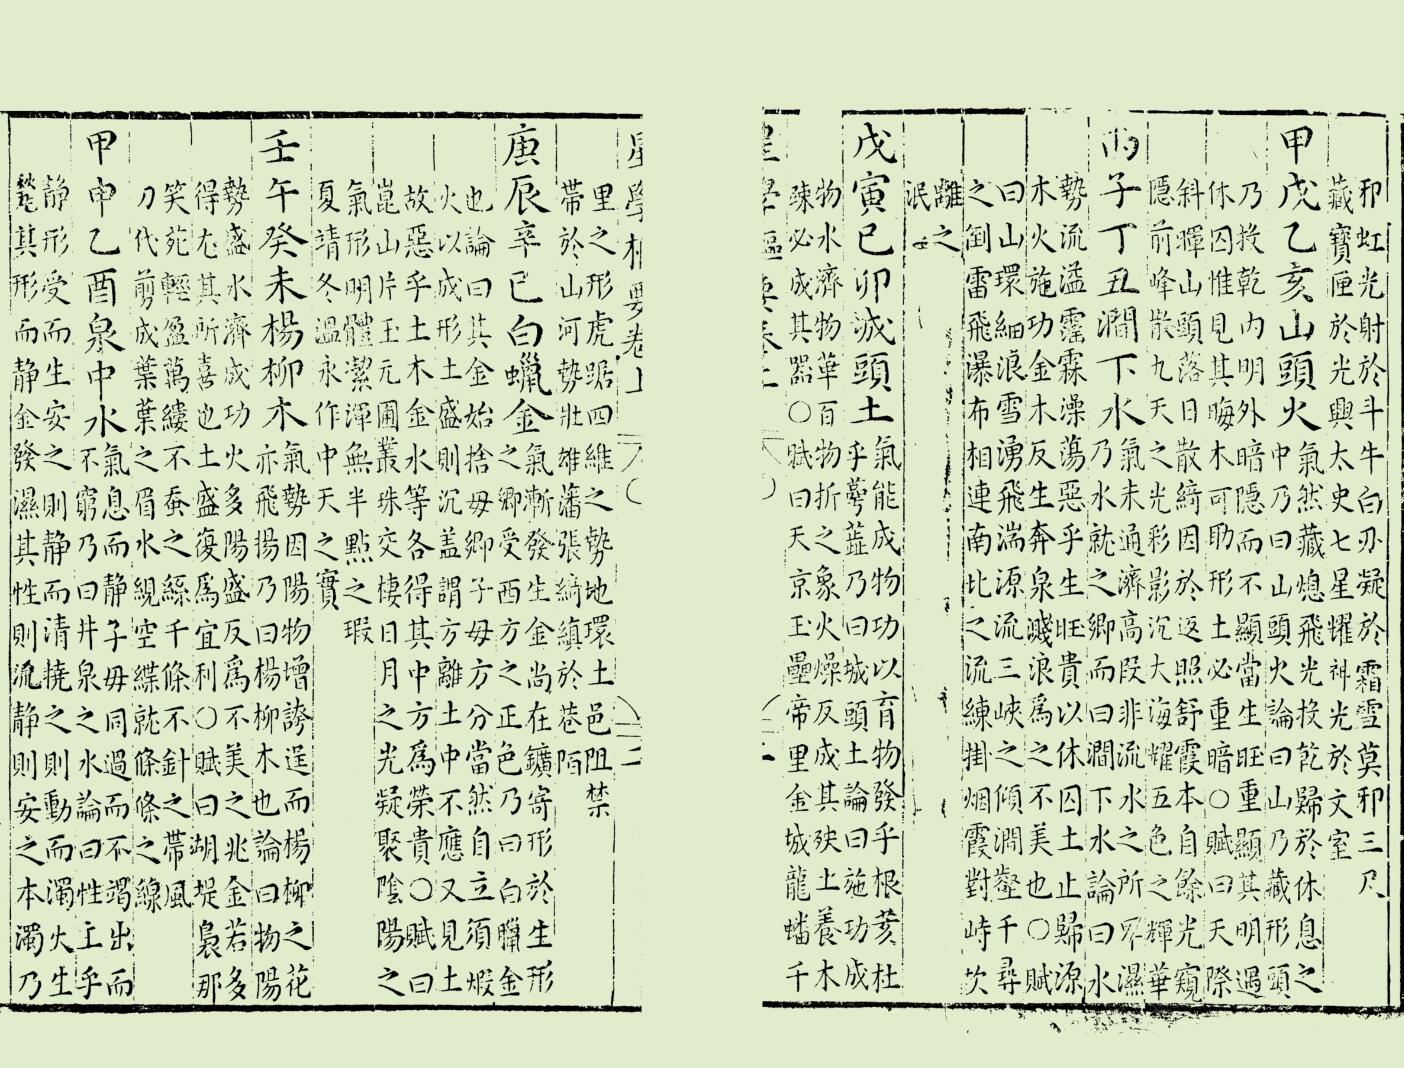 邪虹光射於斗牛白刃凝於霜雪莫邪三尺
藏寶匣於光興太史七星耀神光於文室
甲戌乙亥山頭火氣然藏熄飛光投乾歸於休息之
中乃曰山頭火論曰山乃藏形頭
乃投乾內明外暗隱而不顯當生旺重顯其明過
休囚惟見其晦木可助形土必重暗〇賦曰天際
斜暉山頭落日散綺因於返照舒霞本自餘光窺
隱前峰散九天之光彩影沉大海耀五色之輝華
丙子丁丑澗下水氣未通濟高段非流水之所濕
乃水就之鄉而曰澗下水論曰水
勢流溢霪霖澡蕩惡乎生旺貴以休囚土止歸源
木火施功金木反生奔泉濺浪為之不美也〇賦
曰山環細浪雪湧飛湍源流三峽之傾澗壑千尋
之倒雷飛瀑布相連南北之流練掛烟霞對峙苂
離之
泯
戊寅己卯城頭土氣能成物功以育物發乎根荄杜
乎蕚蘁乃曰城頭土論曰施功成
物水濟物華百物折之象火燥反成其殃土養木
疎必成其器〇賦曰天京玉壘帝里金城龍蟠千
里之形虎踞四維之勢地環土邑阻禁
帶於山河勢壯雄藩張綺縝於巷陌
庚辰辛巳白蠟金氣漸發生金尚在鑛寄形於生形
之鄉受西方之正色乃曰白臘金
也論曰其金始捨母鄉子母方分當然自立須煆
火以成形土盛則沉盖謂方離土中不應又見土
故惡乎土木金水等各得其中方為榮貴〇賦曰
崑山片玉元圃叢珠交棲日月之光凝聚陰陽之
氣形明體潔渾無半點之瑕
夏靖冬溫永作中天之實
壬午癸未楊柳木氣勢因陽物增誇逞而楊柳之花
亦飛揚乃曰楊柳木也論曰物陽
勢盛水濟成功火多陽盛反為不美之兆金若多
得尤其所喜也土盛復為宜利〇賦曰胡堤裊那
笑苑輕盈萬縷不蚕之絲千條不針之帶風
刀代剪成葉葉之眉水覬空緤就條條之線
甲申乙酉泉中水氣息而靜子母同過而不竭出而
不窮乃曰井泉之水論曰性主乎
靜形受而生安之則靜而清撓之則動而濁火生
其形而靜金發濕其性則流靜則安之本濁乃